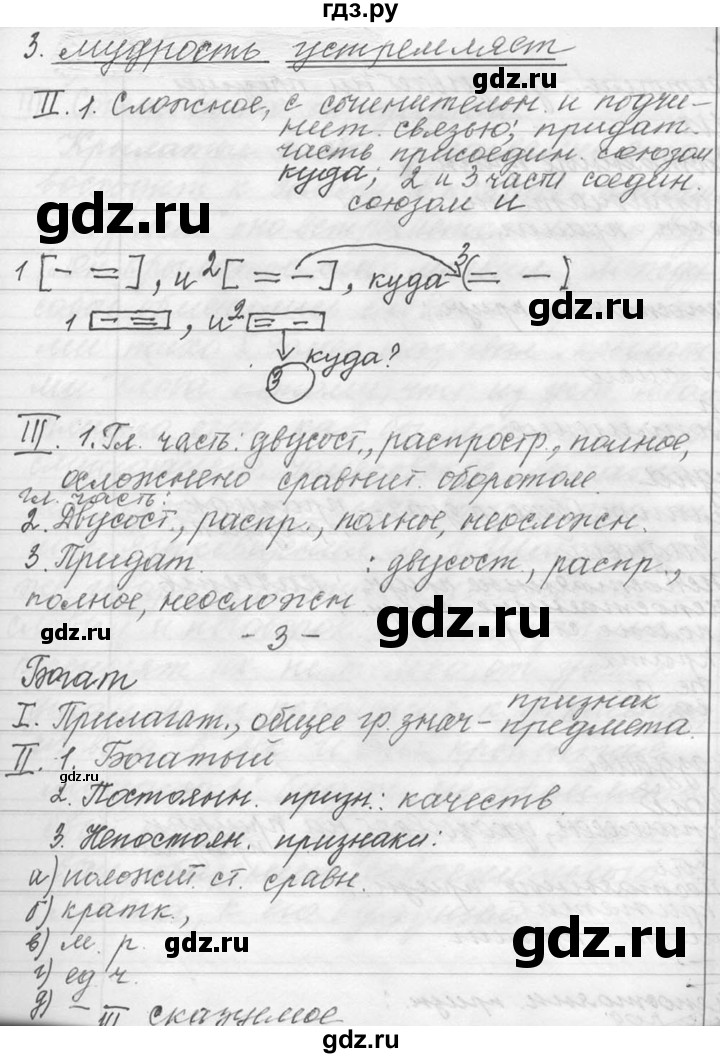 гдз.ру
3. мудрость устремляет
II. 1. Сложное, с сочинительн и подчи-
нест. связью; придат.
часть присоедин. союзом
куда; 2 и 3 части соедин.
союзом и
gdz.ru
gdz.ru
1 [- =], и 2 [= -], куда 3 (= -)
1 [- =], и 2 [= -]
куда?
3
gdz.ru
gdz.ru
III. 1. Гл. часть: двусост., распростр., полное,
осложнено сравнит. оборотом.
гл. часть:
2. Двусост., распр., полное, неосложн.
3. Придат. : двусост., распр.,
полное, неосложн
gdz.ru
gdz.ru
- 3 -
Богат
признак
I. Прилагат., общее гр. знач - предмета.
II. 1. Богатый
gdz.ru
2. Постоянн. призн.: качеств
gdz.ru
3. Непостоян. признаки:
а) положит. ст. сравн.
б) кратк.,
в) м. р.
gdz.ru
gdz.ru
г) ед. ч.
д) -
III сказуемое
gdz.ru